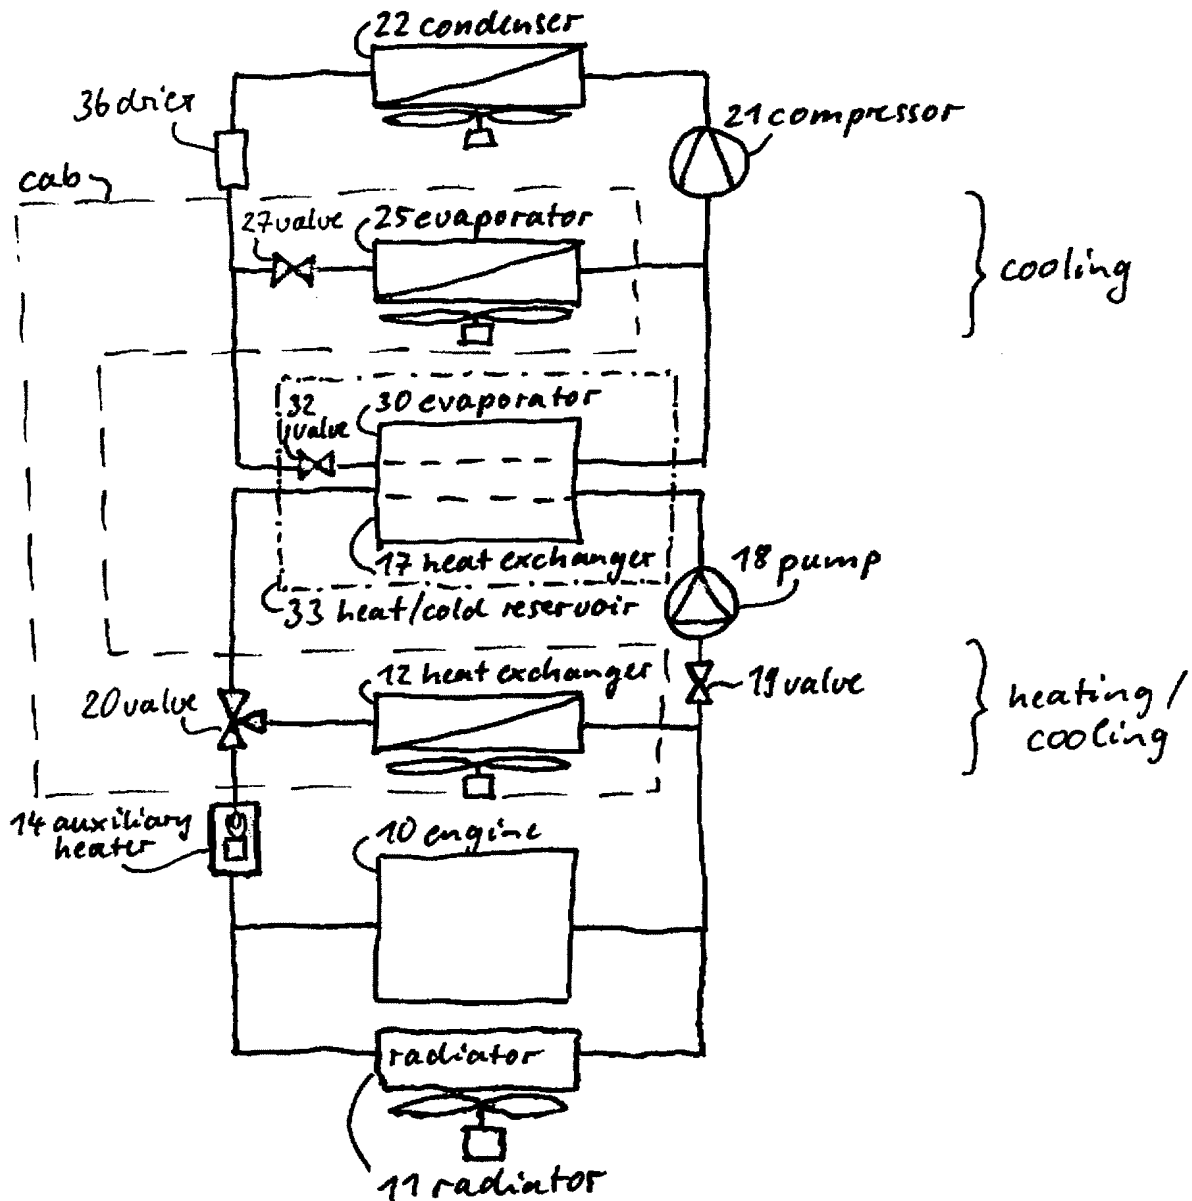 22 condenser
36 drier
21 compressor
cab
27 valve
25 evaporator
cooling
30 evaporator
32
valve
17 heat exchanger
18 pump
33 heat/cold reservoir
12 heat exchanger
19 valve
20 valve
heating/
cooling
14 auxiliary
heater
10 engine
radiator
11 radiator